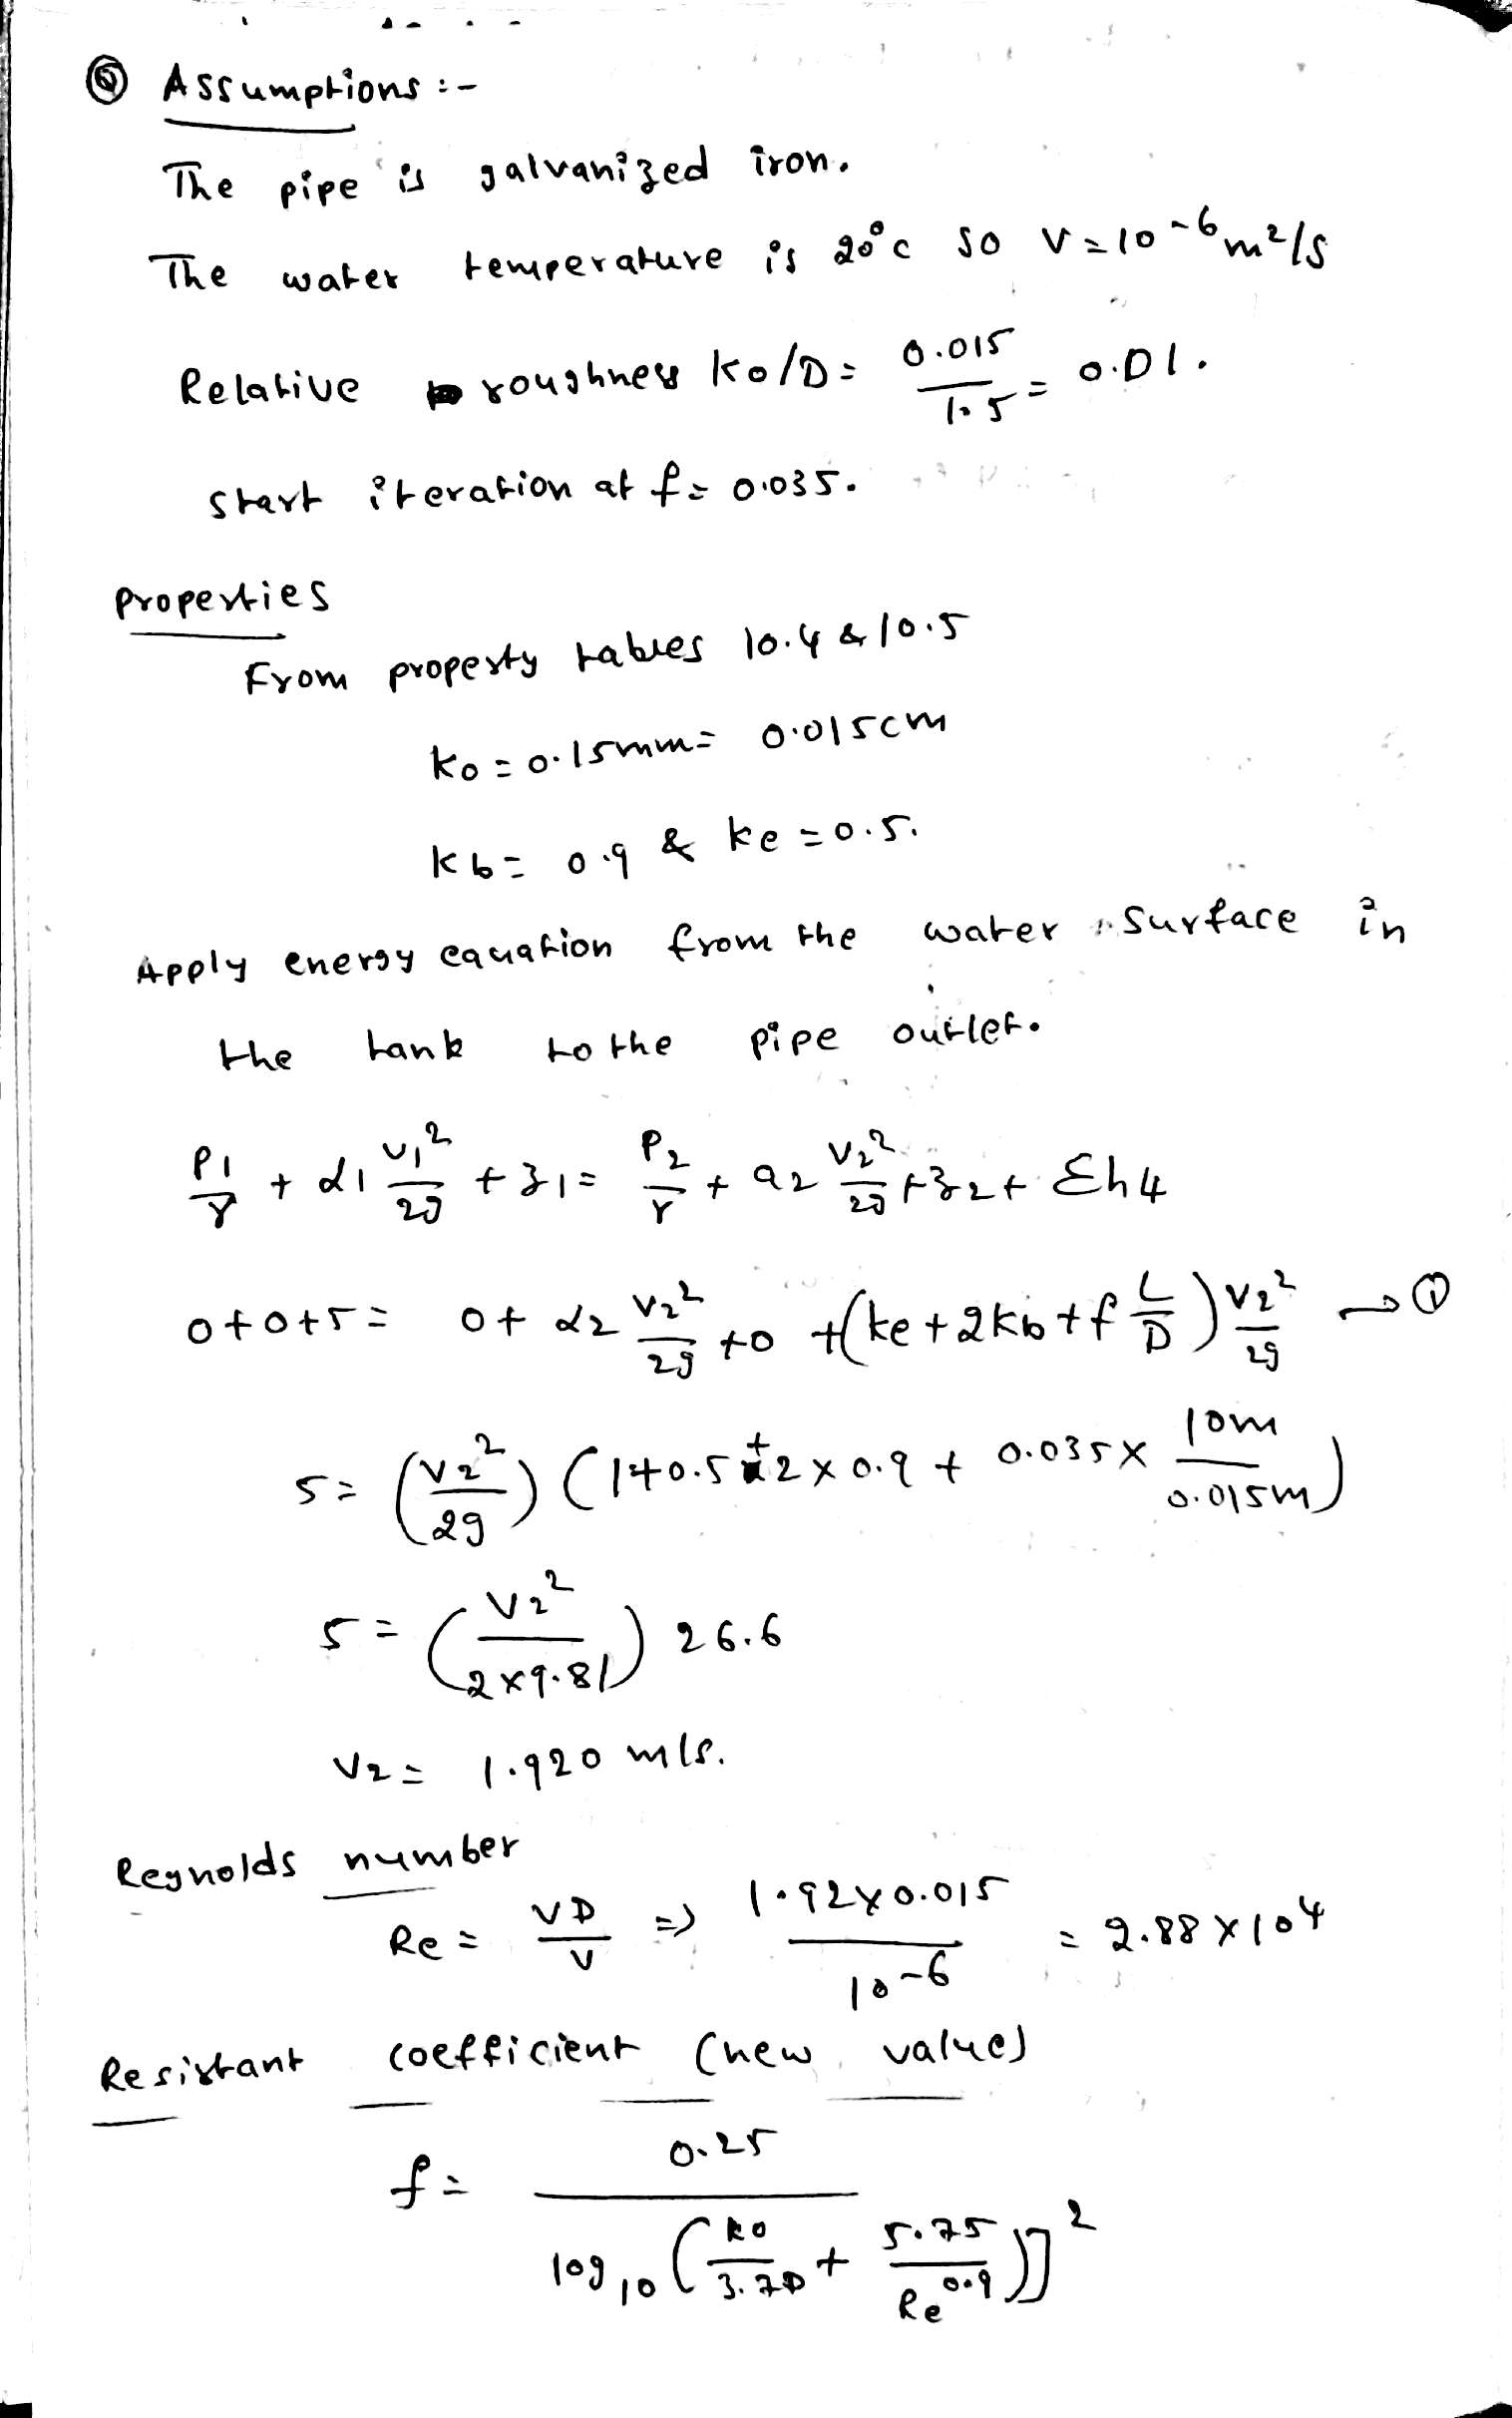 ⑤ Assumptions :-
The pipe is galvanized iron.
The water temperature is 20°c so ν=10^-6 m²/s
Relative roughness ko/D = 0.015/1.5 = 0.01.
start iteration at f = 0.035.
properties
From property tables 10.4 & 10.5
ko = 0.15mm = 0.015cm
kb = 0.9 & ke = 0.5.
Apply energy equation from the water surface in
the tank to the pipe outlet.
P1/γ + α1 V1²/2g + z1 = P2/γ + α2 V2²/2g + z2 + Σh4
0+0+5 = 0+ α2 V2²/2g +0 +(ke+2kb+f L/D) V2²/2g →①
5 = (V2²/2g) (1+0.5+2×0.9 + 0.035× 10m/0.015m)
5 = (V2²/2×9.81) 26.6
V2 = 1.920 m/s.
Reynolds number
Re = VD/ν => 1.92×0.015/10^-6 = 2.88×10^4
Resistant coefficient (new value)
f = 0.25/log10 (ko/3.7D + 5.75/Re^0.9)]²